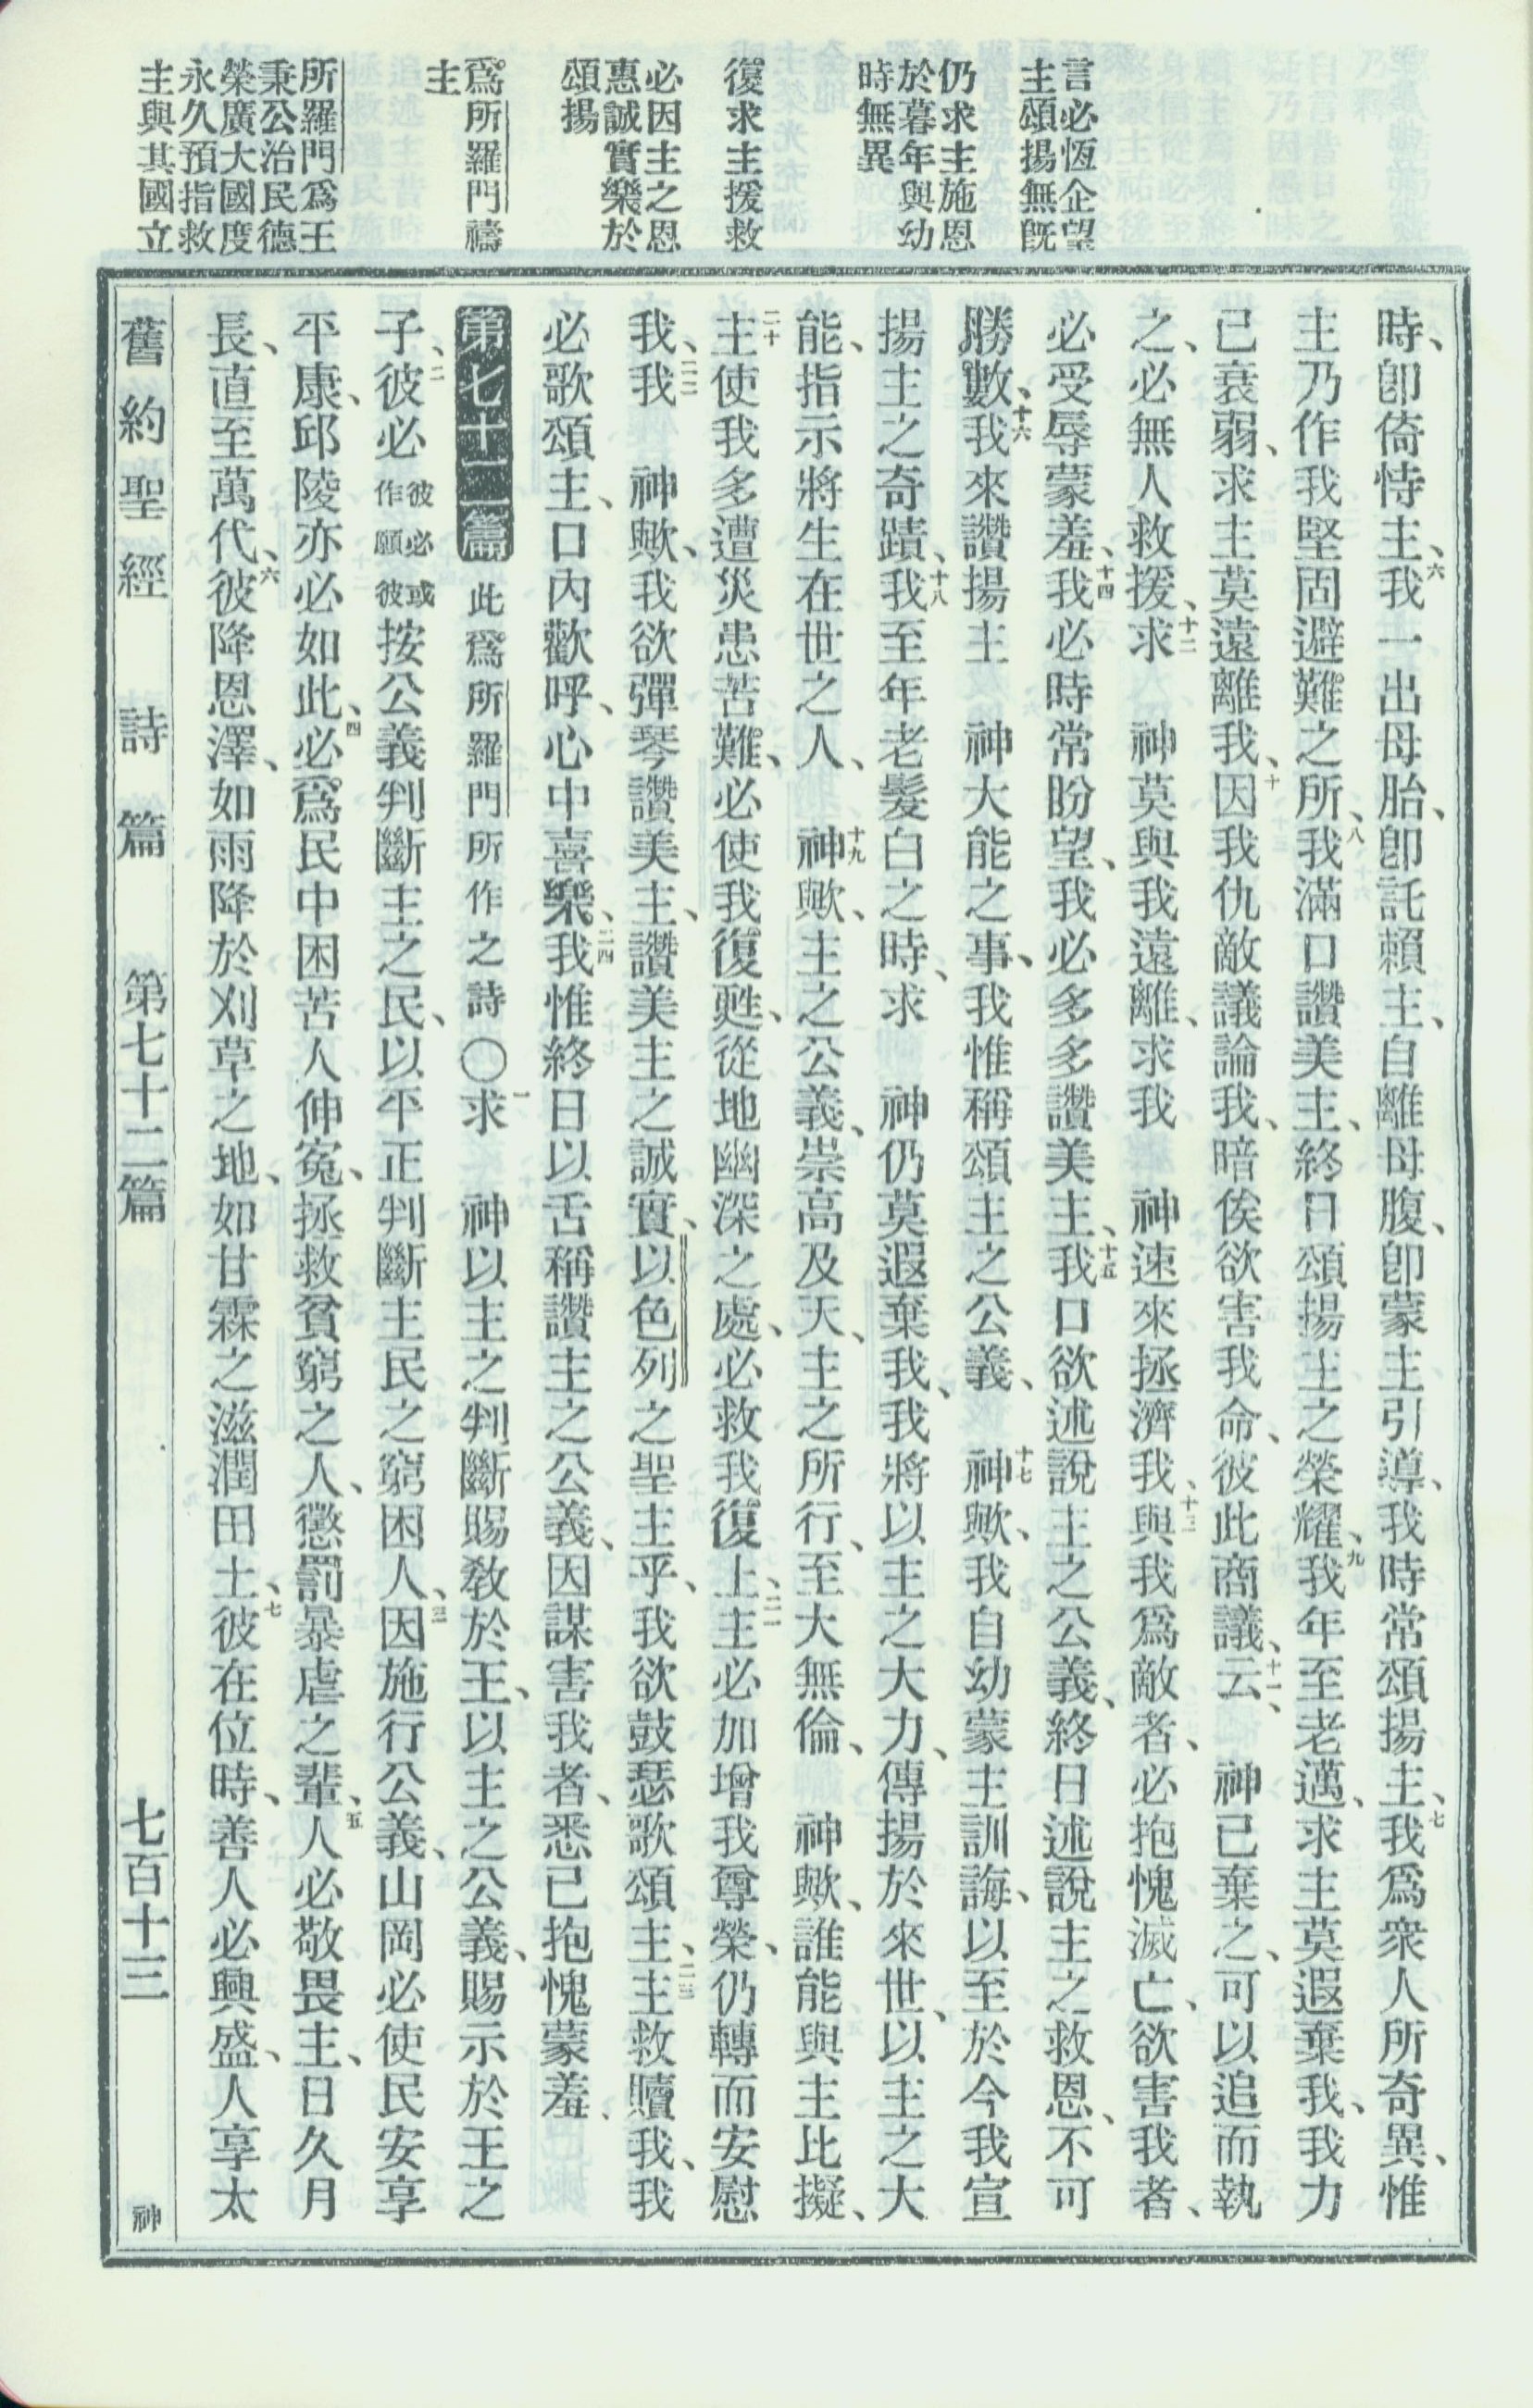 言必恆企望
主頌揚無既
仍求主施恩
於暮年與幼
時無異
復求主援救
必因主之恩
惠誠實樂於
頌揚
爲所羅門禱
主
所羅門爲王
秉公治民德
榮廣大國度
永久預指救
主與其國立
時、卽倚恃主、六我一出母胎、卽託賴主、自離母腹、卽蒙主引導、我時常頌揚主、七我爲衆人所奇異、惟
主乃作我堅固避難之所、八我滿口讚美主、終日頌揚主之榮耀、九我年至老邁、求主莫遐棄我、我力
已衰弱、求主莫遠離我、十因我仇敵議論我、暗俟欲害我命、彼此商議、十一云、　神已棄之、可以追而執
之、必無人救援、十二求　神莫與我遠離、求我　神速來拯濟我、十三與我爲敵者、必抱愧滅亡、欲害我者、
必受辱蒙羞、十四我必時常盼望、我必多多讚美主、十五我口欲述說主之公義、終日述說主之救恩、不可
勝數、十六我來讚揚主　神大能之事、我惟稱頌主之公義、　十七神歟、我自幼蒙主訓誨、以至於今我宣
揚主之奇蹟、十八我至年老髮白之時、求　神仍莫遐棄我、我將以主之大力、傳揚於來世、以主之大
能、指示將生在世之人、　十九神歟、主之公義、崇高及天、主之所行、至大無倫、　神歟、誰能與主比擬、
二十主使我多遭災患苦難、必使我復甦、從地幽深之處、必救我復上、二一主必加增我尊榮、仍轉而安慰
我、二二我　神歟、我欲彈琴讚美主、讚美主之誠實、以色列之聖主乎、我欲鼓瑟歌頌主、二三主救贖我、我
必歌頌主、口內歡呼、心中喜樂、二四我惟終日以舌稱讚主之公義、因謀害我者、悉已抱愧蒙羞、
第七十二篇　此爲所羅門所作之詩〇一求　神以主之判斷賜敎於王、以主之公義、賜示於王之
子、二彼必彼必或作願彼按公義判斷主之民、以平正判斷主民之窮困人、三因施行公義、山岡必使民安享
平康、邱陵亦必如此、四必爲民中困苦人伸寃、拯救貧窮之人、懲罰暴虐之輩、五人必敬畏主、日久月
長、直至萬代、六彼降恩澤、如雨降於刈草之地、如甘霖之滋潤田土、七彼在位時、善人必興盛、人享太
舊約聖經　詩篇　第七十二篇　七百十三　神